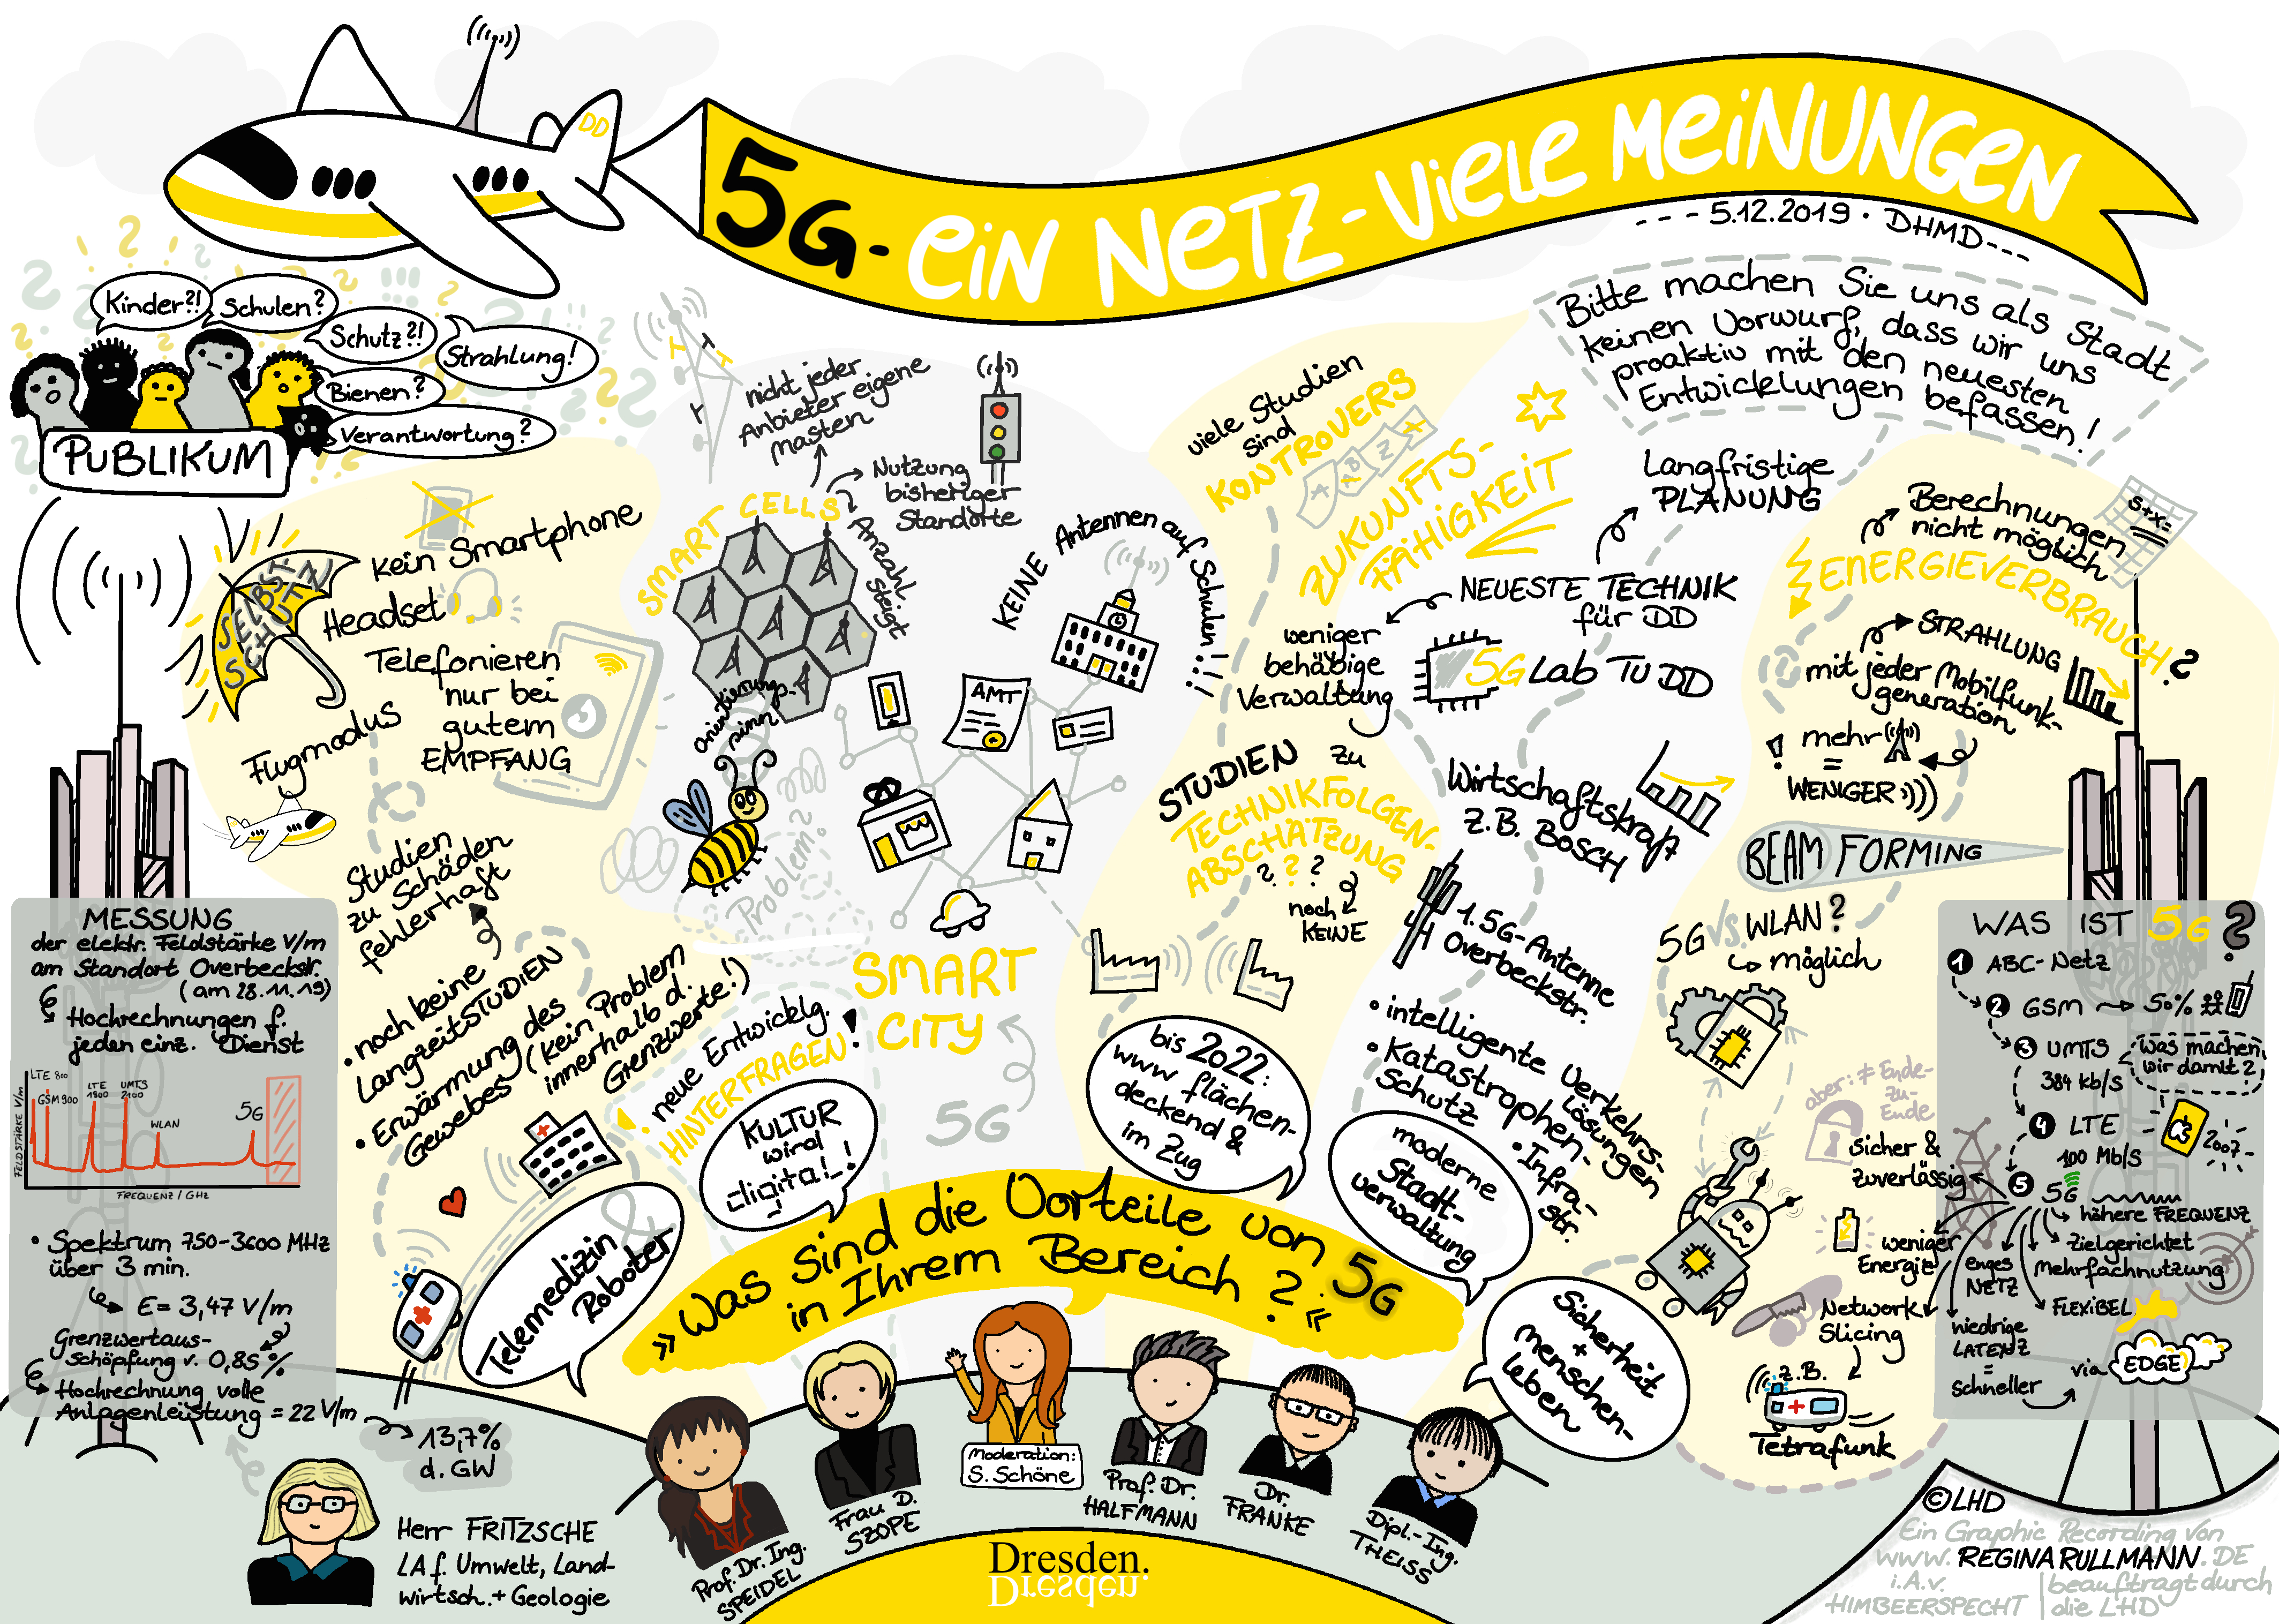 5G - EIN NETZ - VIELE MEINUNGEN
--- 5.12.2019 · DHMD ---
DD
Kinder?!
Schulen?
Schutz?!
Strahlung!
Bienen?
Verantwortung?
PUBLIKUM
SELBST-
SCHUTZ
kein Smartphone
Headset
Telefonieren
nur bei
gutem
EMPFANG
Flugmodus
Studien
zu Schäden
fehlerhaft
• noch keine
LangzeitSTUDIEN
• Erwärmung des
Gewebes (kein Problem
innerhalb d.
Grenzwerte!)
nicht jeder
Anbieter eigene
Masten
SMART CELLS
Nutzung
bisheriger
Standorte
Anzahl
steigt
KEINE Antennen auf Schulen!!!
orientierungs-
sinn
Problem?
AMT
SMART
CITY
5G
! neue Entwicklg.
HINTERFRAGEN!
viele Studien
sind
KONTROVERS
A
AB
Z
A
ZUKUNFTS-
FÄHIGKEIT
Bitte machen Sie uns als Stadt
keinen Vorwurf, dass wir uns
proaktiv mit den neuesten
Entwicklungen befassen!
Langfristige
PLANUNG
NEUESTE TECHNIK
für DD
weniger
behäbige
Verwaltung
5G Lab TU DD
STUDIEN zu
TECHNIKFOLGEN-
ABSCHÄTZUNG
? ? ?
noch
KEINE
Wirtschaftskraft
z.B. BOSCH
1. 5G-Antenne
Overbeckstr.
• intelligente Verkehrs-
lösungen
• Katastrophen-
Schutz
• Infra-
str.
Berechnungen
nicht möglich
S+X=
ENERGIEVERBRAUCH?
STRAHLUNG
mit jeder Mobilfunk-
generation
! mehr
=
WENIGER
BEAM FORMING
5G vs. WLAN?
möglich
aber: ≠ Ende-
zu-
Ende
sicher &
zuverlässig
weniger
Energie
Network
Slicing
z.B.
Tetrafunk
MESSUNG
der elektr. Feldstärke V/m
am Standort Overbeckstr.
(am 28.11.19)
Hochrechnungen f.
jeden einz. Dienst
LTE 800
GSM 900
LTE
1800
UMTS
2100
WLAN
5G
FELDSTÄRKE V/m
FREQUENZ / GHz
• Spektrum 750-3600 MHz
über 3 min.
E = 3,47 V/m
Grenzwertaus-
schöpfung v. 0,85 %
Hochrechnung volle
Anlagenleistung = 22 V/m
13,7%
d. GW
WAS IST 5G?
1 ABC-Netz
2 GSM → 50%
3 UMTS
384 kb/s
was machen
wir damit?
4 LTE
100 Mb/s
2007
5 5G
höhere FREQUENZ
Zielgerichtet
Mehrfachnutzung
enges
NETZ
FLEXIBEL
niedrige
LATENZ
=
schneller
via EDGE
Telemedizin &
Roboter
KULTUR
wird
digital!
bis 2022:
www flächen-
deckend &
im Zug
moderne
Stadt-
verwaltung
Sicherheit
+
Menschen-
leben
»Was sind die Vorteile von 5G
in Ihrem Bereich?«
Herr FRITZSCHE
LA f. Umwelt, Land-
wirtsch. + Geologie
Prof. Dr. Ing.
SPEIDEL
Frau D.
SZOPE
Moderation:
S. Schöne
Prof. Dr.
HALFMANN
Dr.
FRANKE
Dipl.-Ing.
THEISS
Dresden.
Dresden.
©LHD
Ein Graphic Recording von
www.REGINARULLMANN.DE
i.A.v.
HIMBEERSPECHT
beauftragt durch
die LHD